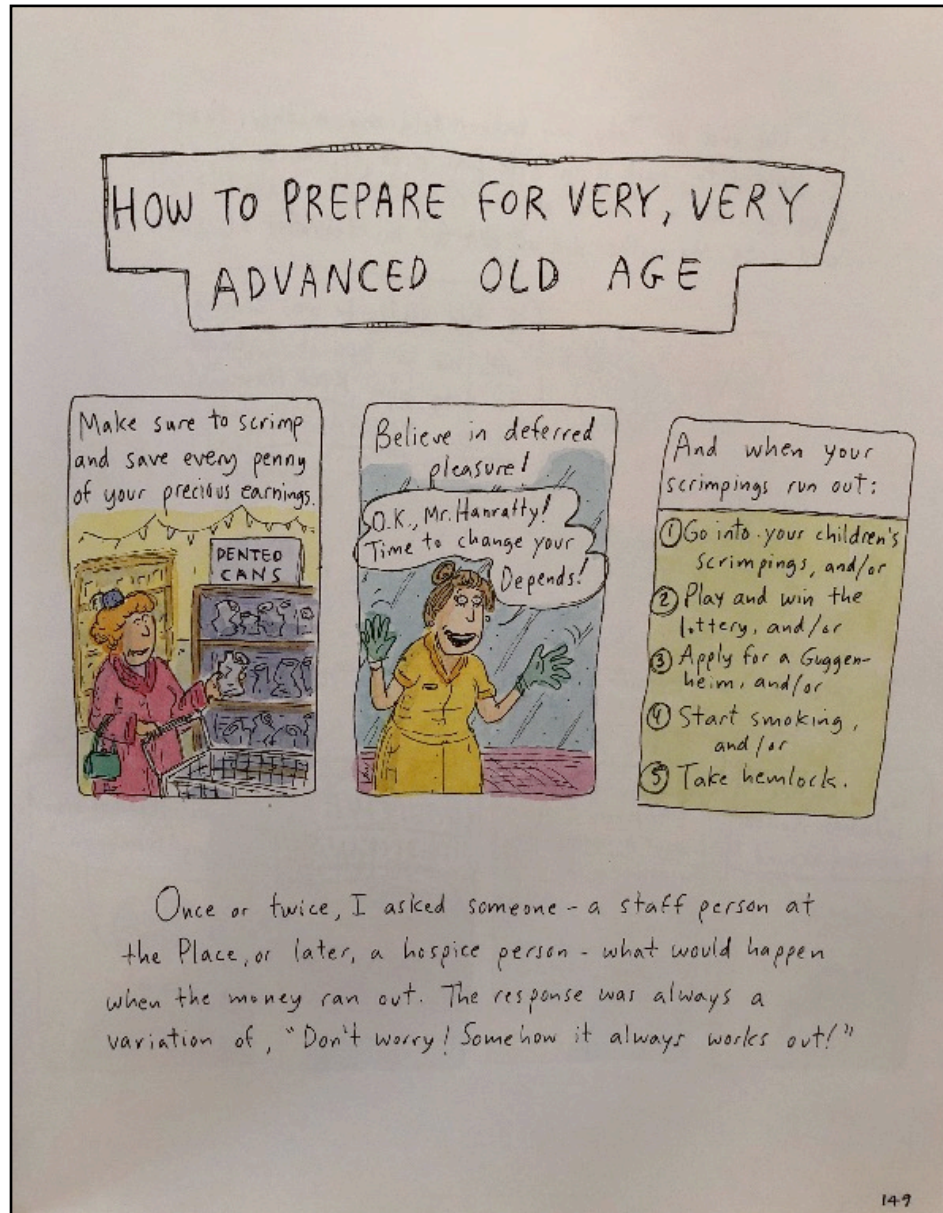 HOW TO PREPARE FOR VERY, VERY
ADVANCED OLD AGE
Make sure to scrimp
and save every penny
of your precious earnings.
DENTED
CANS
Believe in deferred
pleasure!
O.K., Mr. Hanratty!
Time to change your
Depends!
And when your
scrimpings run out:
① Go into your children's
scrimpings, and/or
② Play and win the
lottery, and/or
③ Apply for a Guggen-
heim, and/or
④ Start smoking,
and/or
⑤ Take hemlock.
Once or twice, I asked someone - a staff person at
the Place, or later, a hospice person - what would happen
when the money ran out. The response was always a
variation of, "Don't worry! Somehow it always works out!"
149